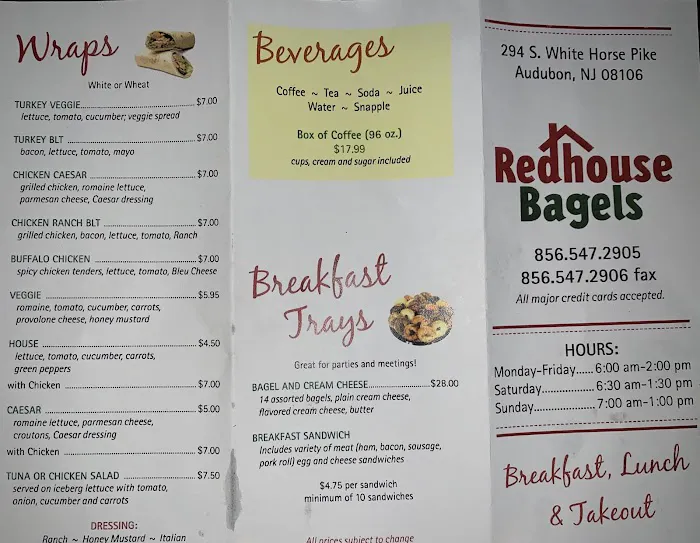 Wraps
White or Wheat
TURKEY VEGGIE..........$7.00
lettuce, tomato, cucumber; veggie spread
TURKEY BLT ..........$7.00
bacon, lettuce, tomato, mayo
CHICKEN CAESAR ..........$7.00
grilled chicken, romaine lettuce,
parmesan cheese, Caesar dressing
CHICKEN RANCH BLT ..........$7.00
grilled chicken, bacon, lettuce, tomato, Ranch
BUFFALO CHICKEN ..........$7.00
spicy chicken tenders, lettuce, tomato, Bleu Cheese
VEGGIE ..........$5.95
romaine, tomato, cucumber, carrots,
provolone cheese, honey mustard
HOUSE ..........$4.50
lettuce, tomato, cucumber, carrots,
green peppers
with Chicken ..........$7.00
CAESAR ..........$5.00
romaine lettuce, parmesan cheese,
croutons, Caesar dressing
with Chicken ..........$7.00
TUNA OR CHICKEN SALAD ..........$7.50
served on iceberg lettuce with tomato,
onion, cucumber and carrots
DRESSING:
Ranch ~ Honey Mustard ~ Italian
Beverages
Coffee ~ Tea ~ Soda ~ Juice
Water ~ Snapple
Box of Coffee (96 oz.)
$17.99
cups, cream and sugar included
Breakfast
Trays
Great for parties and meetings!
BAGEL AND CREAM CHEESE..........$28.00
14 assorted bagels, plain cream cheese,
flavored cream cheese, butter
BREAKFAST SANDWICH
Includes variety of meat (ham, bacon, sausage,
pork roll) egg and cheese sandwiches
$4.75 per sandwich
minimum of 10 sandwiches
All prices subject to change
294 S. White Horse Pike
Audubon, NJ 08106
Redhouse
Bagels
856.547.2905
856.547.2906 fax
All major credit cards accepted.
HOURS:
Monday-Friday.....6:00 am-2:00 pm
Saturday..........6:30 am-1:30 pm
Sunday..........7:00 am-1:00 pm
Breakfast, Lunch
& Takeout